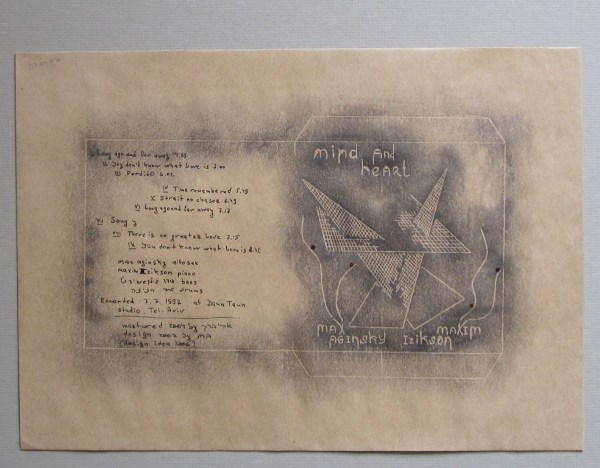 Long ago and far away 7.53
II You don't know what love is 7.00
III Perdido 6.01
IV Time remembered 5.13
V Strait no chaser 6.43
VI Long ago and far away 7.17
VII Song 7
VIII There is no greater love 7.15
IX You don't know what love is 8.15
max aginsky alto sax
maxim Izikson piano
bass
drums
Recorded 7.7.1997 at Down Town
studio. Tel-Aviv
mastered 2002 by
design 2002 by MA
(design idea 2000)
mind and
heart
MAX
AGINSKY
MAXIM
IZIKSON